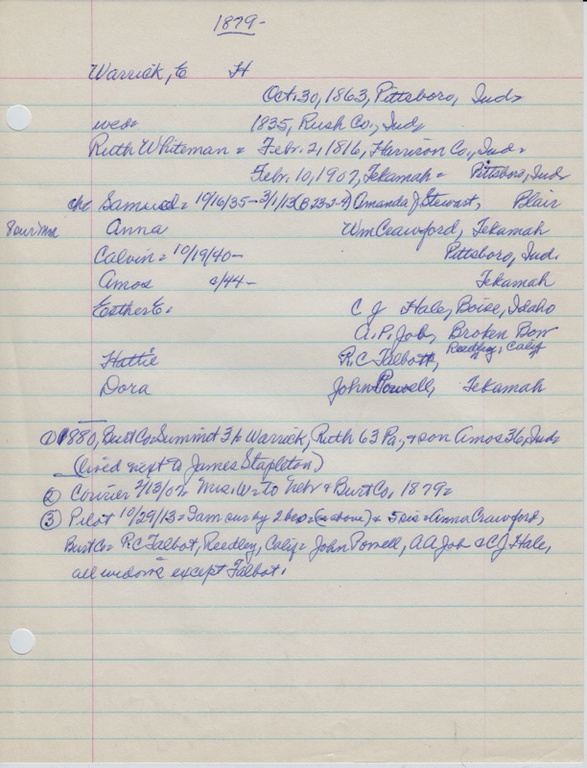 1879-
Warrick, H
Oct. 30, 1863, Pittsboro, Ind.
wed= 1835, Rush Co., Ind.
Ruth Whiteman = Febr. 2, 1816, Harrison Co., Ind.
Febr. 10, 1907, Tekamah = Pittsboro, Ind
Samuel = 10/16/35- 3/1/13 (B232-4) Amanda J Stewart, Blair
Anna Wm Crawford, Tekamah
Calvin = 10/19/40- Pittsboro, Ind.
Amos c/44- Tekamah
Esther E. C J Hale, Boise, Idaho
A. P. Job, Broken Bow
Hattie R. C Talbott, Reedley, Calif
Dora John Powell, Tekamah
① 1880, Burt Co= Summit 3 h Warrick, Ruth 63 Pa., + son Amos 36, Ind
(lived next to James Stapleton)
② Courier 2/13/07= Mrs. W= to Nebr + Burt Co, 1879=
③ Pilot 10/29/13= Sam sur by 2 bro= (= above) + 5 sis= Anna Crawford,
Burt Co= R C Talbot, Reedley, Calif= John Powell, A A Job + C J Hale,
all widows except Talbot.